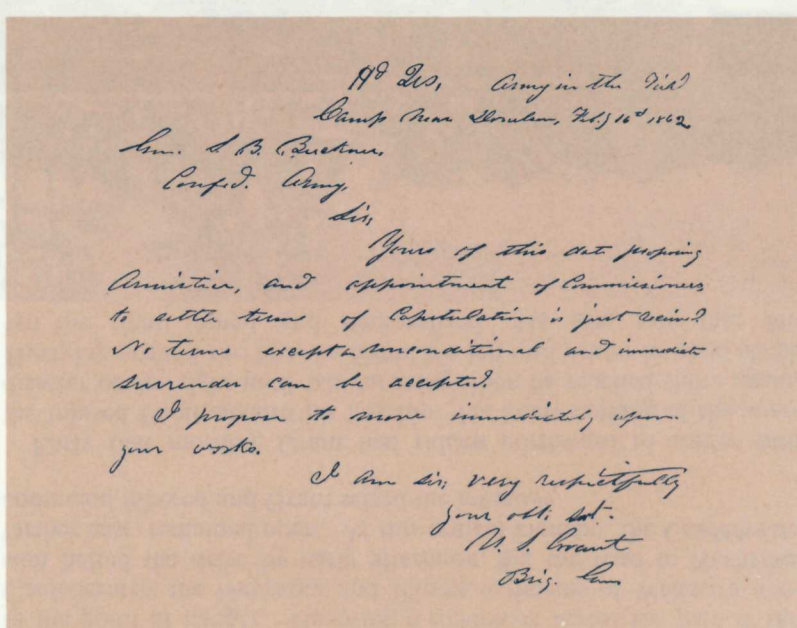 Hd Qrs, Army in the Field
Camp near Donelson, Feby 16th 1862
Gen. S. B. Buckner,
Confed. Army,
Sir;
Yours of this date proposing
Armistice, and appointment of Commissioners
to settle terms of Capitulation is just received.
No terms except unconditional and immediate
surrender can be accepted.
I propose to move immediately upon
your works.
I am sir; very respectfully
your obt. svt.
U. S. Grant
Brig. Gen